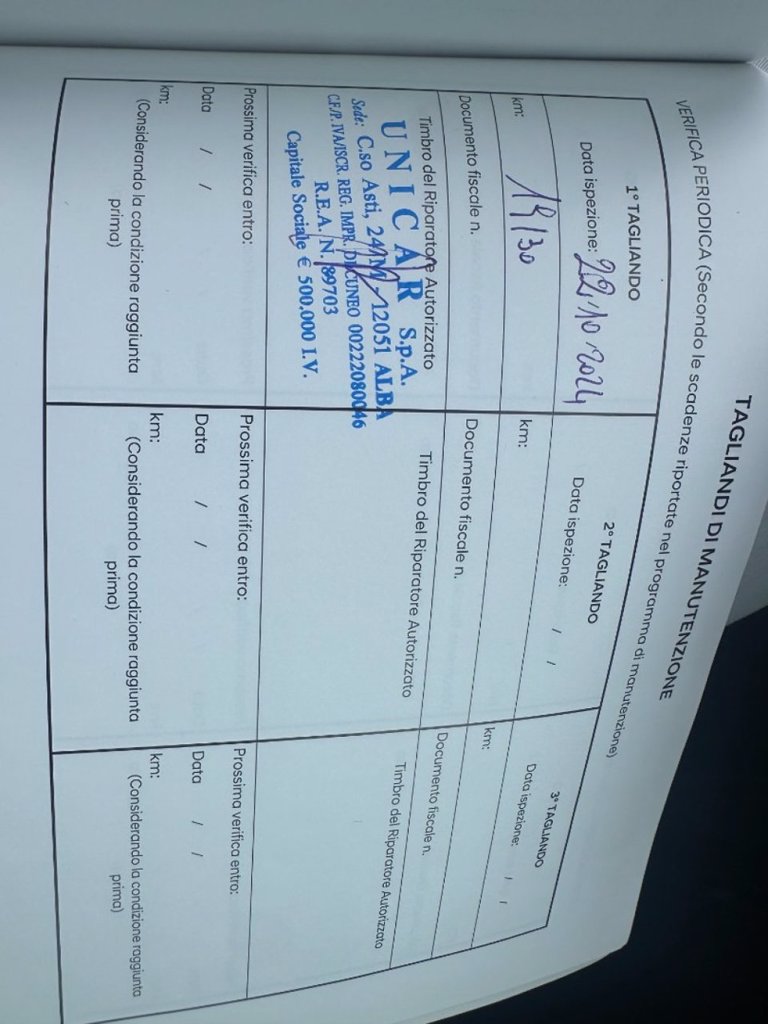 TAGLIANDI DI MANUTENZIONE
VERIFICA PERIODICA (Secondo le scadenze riportate nel programma di manutenzione)
1° TAGLIANDO
Data ispezione: 22.10.2024
km: 19130
Documento fiscale n.
Timbro del Riparatore Autorizzato
UNICAR S.p.A.
Sede: C.so Asti, 24 12051 ALBA
C.F./P. IVA/ISCR. REG. IMPR. DI CUNEO 00222080046
R.E.A. N. 89703
Capitale Sociale € 500.000 I.V.
Prossima verifica entro:
Data / /
km:
(Considerando la condizione raggiunta
prima)
2° TAGLIANDO
Data ispezione: / /
km:
Documento fiscale n.
Timbro del Riparatore Autorizzato
Prossima verifica entro:
Data / /
km:
(Considerando la condizione raggiunta
prima)
3° TAGLIANDO
Data ispezione: / /
km:
Documento fiscale n.
Timbro del Riparatore Autorizzato
Prossima verifica entro:
Data / /
km:
(Considerando la condizione raggiunta
prima)